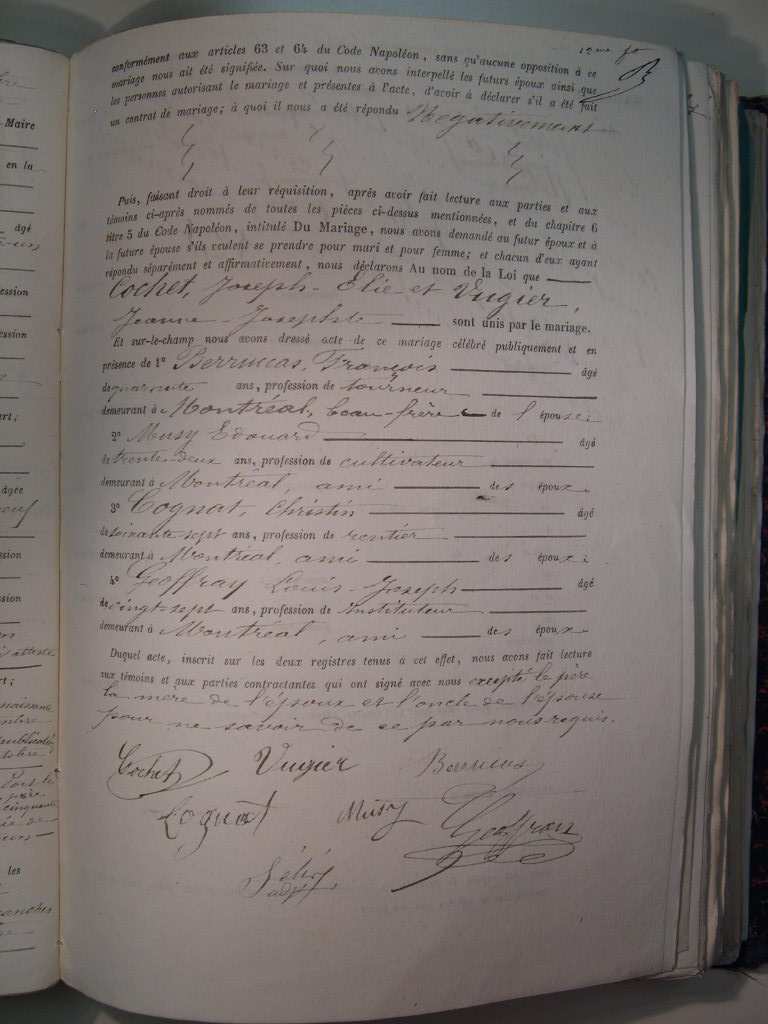 12me fo
conformément aux articles 63 et 64 du Code Napoléon, sans qu'aucune opposition à ce
mariage nous ait été signifiée. Sur quoi nous avons interpellé les futurs époux ainsi que
les personnes autorisant le mariage et présentes à l'acte, d'avoir à déclarer s'il a été fait
un contrat de mariage; à quoi il nous a été répondu Négativement
Puis, faisant droit à leur réquisition, après avoir fait lecture aux parties et aux
témoins ci-après nommés de toutes les pièces ci-dessus mentionnées, et du chapitre 6
titre 5 du Code Napoléon, intitulé Du Mariage, nous avons demandé au futur époux et à
la future épouse s'ils veulent se prendre pour mari et pour femme; et chacun d'eux ayant
répondu séparément et affirmativement, nous déclarons Au nom de la Loi que
Cochet, Joseph-Elie et Vugier,
Jeanne-Josephte sont unis par le mariage.
Et sur-le-champ nous avons dressé acte de ce mariage célébré publiquement et en
présence de 1° Berrucas, François âgé
de quarante ans, profession de tourneur
demeurant à Montréal, beau-frère de l'épouse;
2° Musy Edouard âgé
de trente-deux ans, profession de cultivateur
demeurant à Montréal, ami des époux
3° Cognat, Christin âgé
de soixante sept ans, profession de rentier
demeurant à Montréal, ami des époux;
4° Geoffray Louis-Joseph âgé
de vingt-sept ans, profession de instituteur
demeurant à Montréal, ami des époux.
Duquel acte, inscrit sur les deux registres tenus à cet effet, nous avons fait lecture
aux témoins et aux parties contractantes qui ont signé avec nous excepté le père
la mère de l'époux et l'oncle de l'épouse
pour ne savoir de ce par nous requis.
Cochet Vugier Berrucas
Cognat Musy Geoffray